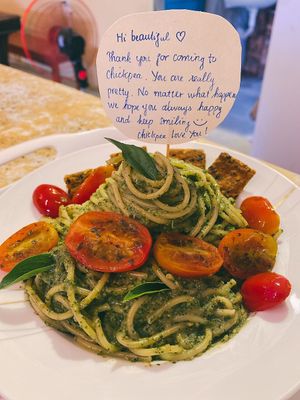 Hi beautiful ♡
Thank you for coming to
Chickpea. You are really
pretty. No matter what happen
we hope you always happy
and keep smiling
chickpea love you!